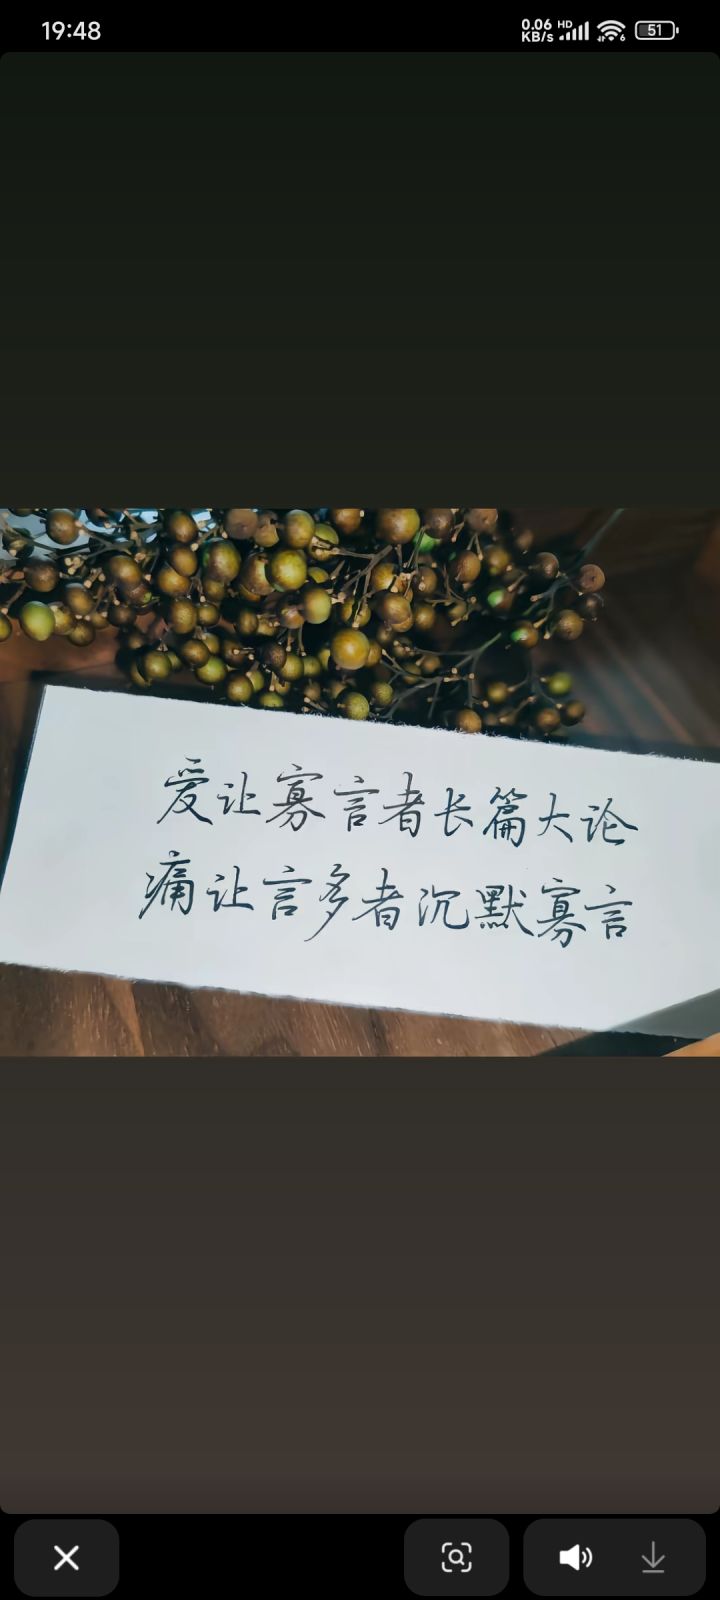 19:48
0.06
KB/s
HD
6
51
爱让寡言者长篇大论
痛让言多者沉默寡言